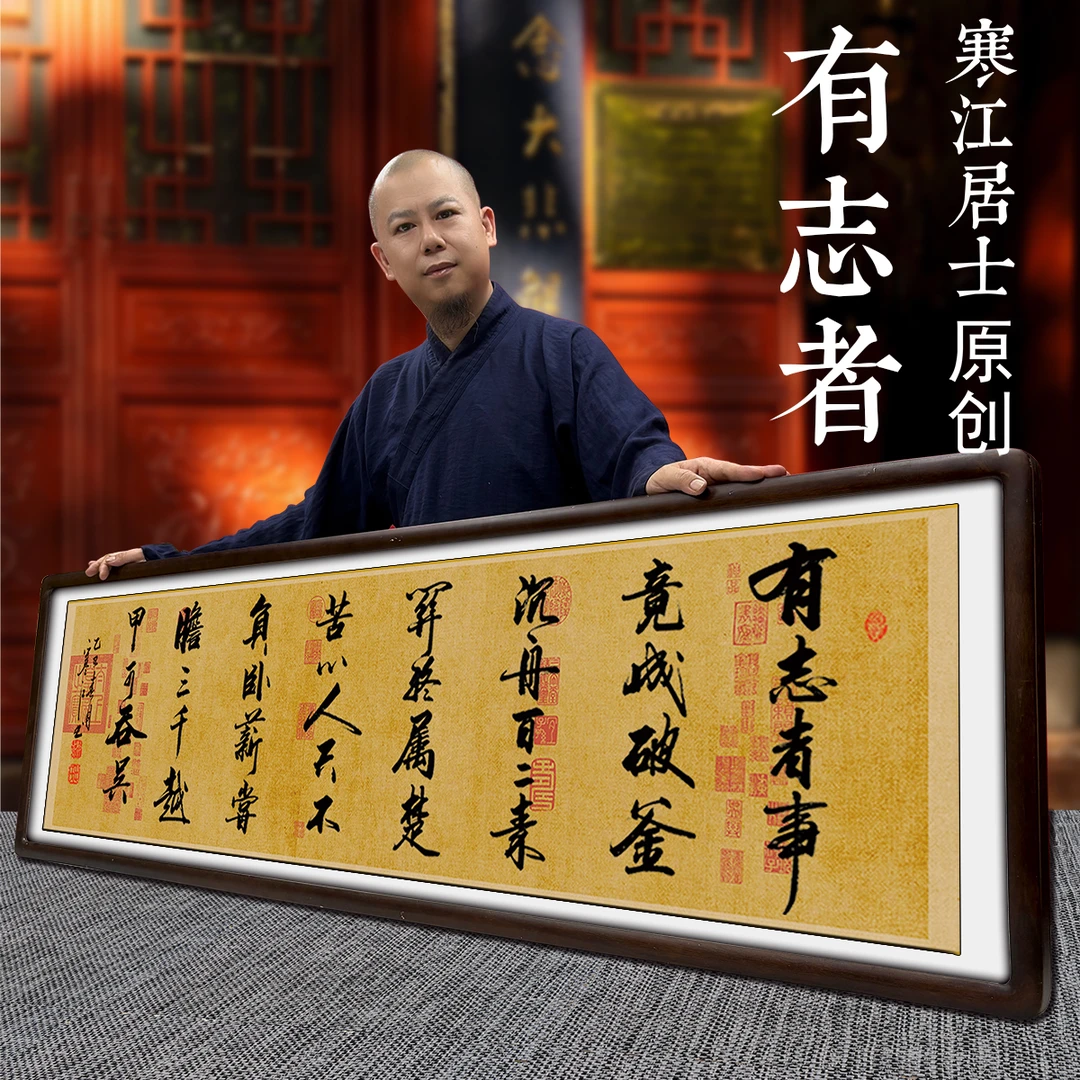 寒江居士 原创
有志者
念大悲
有志者事
竟成破釜
沉舟百二秦
関终属楚
苦心人天不
負卧薪嘗
膽三千越
甲可吞吴